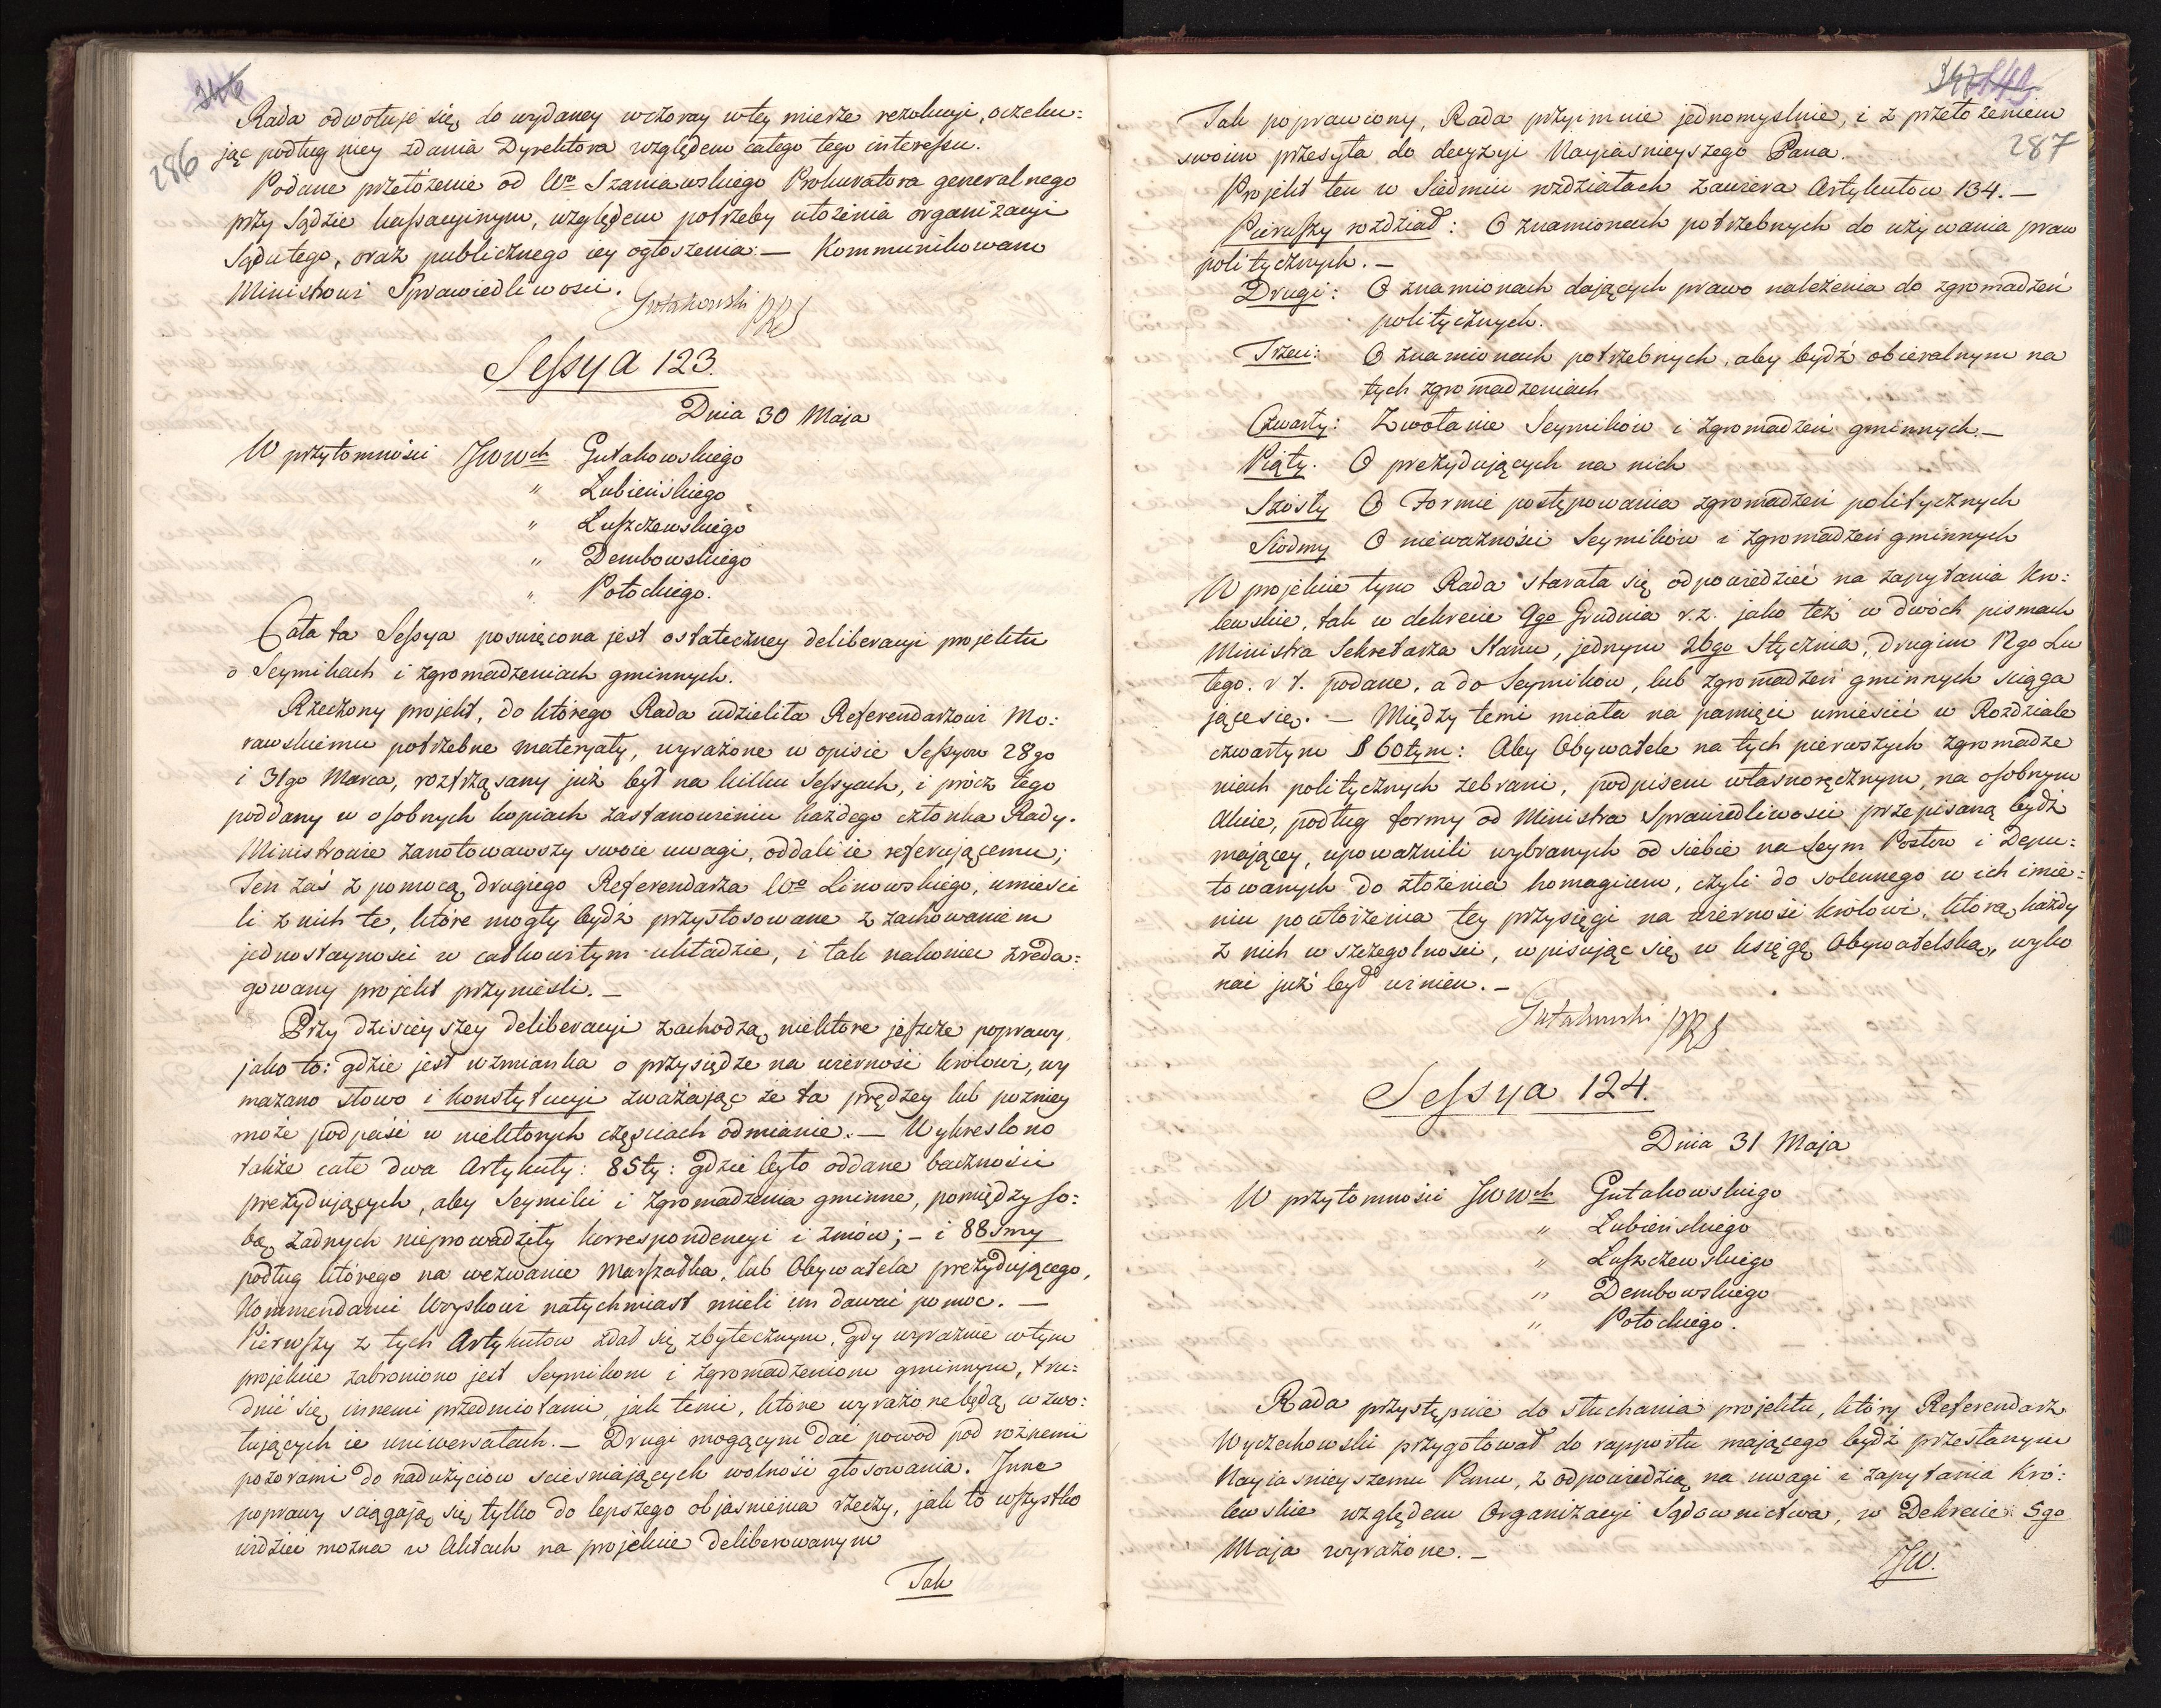 286
Rada odwołuje się do wydaney wczoray wtey mierze rezolucyi, oczeku:
jąc podług niey zdania Dyrektora względem całego tego interessu.
Podane przełożenie od Wo Szaniawskiego Prokuratora generalnego
przy Sądzie kassacyinym, względem potrzeby ułożenia organizacyi
Sądu tego, oraz publicznego iey ogłoszenia. — Kommunikowano
Ministrowi Sprawiedliwości.
Gutakowski PRS
Sessya 123.
Dnia 30 Maja
W przytomności JWWch Gutakowskiego
" Łubieńskiego
" Łuszczewskiego
" Dembowskiego
" Potockiego.
Cała ta Sessya poswięcona jest ostateczney deliberacyi projektu
o Seymikach i zgromadzeniach gminnych.
Rzeczony projekt, do którego Rada udzieliła Referendarzowi Mo:
rawskiemu potrzebne materyały, wyrażone w opisie Sessyow 28go
i 31go Marca, roztrząsany już był na kilku Sessyach, i prócz tego
poddany w osobnych kopiach zastanowieniu każdego członka Rady.
Ministrowie zanotowawszy swoie uwagi, oddali ie referującemu;
Ten zaś z pomocą drugiego Referendarza Wo Linowskiego, umieści
li z nich te, które mogły bydź przystosowane z zachowaniem
jednostayności w całkowitym układzie, i tak nakoniec zreda:
gowany projekt przynieśli. —
Przy dzisieyszey deliberacyi zachodzą niektóre jeszcze poprawy,
jako to: gdzie jest wzmianka o przysiędze na wierność królowi, wy
mazano słowo i konstytucyi zważając że ta prędzey lub pozniey
może podpaść w niektórych częściach odmianie. — Wykreslono
także całe dwa Artykuły: 85ty: gdzie było oddane baczności
prezydujących, aby Seymiki i Zgromadzenia gminne, pomiędzy so:
bą żadnych nieprowadziły korrespondencyi i zmów; — i 88smy
podług którego na wezwanie Marszałka, lub Obywatela prezydującego,
Kommendanci Woyskowi natychmiast mieli im dawać pomoc. —
Pierwszy z tych Artykułow zdał się zbytecznym, gdy wyraźnie wtym
projekcie zabroniono jest Seymikom i zgromadzeniom gminnym, tru:
dnić się innemi przedmiotami jak temi, które wyrażone będą w zwo:
łujących ie uniwersałach. — Drugi mogącym dać powod pod rożnemi
pozorami do nadużyciow scieśniających wolności głosowania. Inne
poprawy sciągają się tylko do lepszego objasnienia rzeczy, jak to wszystko
widzieć można w Aktach na projekcie deliberowanym
Tak
287
Tak poprawiony, Rada przyimuie jednomyslnie, i z przełożeniem
swoim przesyła do decyzyi Nayiasnieyszego Pana.
Projekt ten w Siedmiu rozdziałach zawiera Artykułow 134. —
Pierwszy rozdział: O znamionach potrzebnych do używania praw
politycznych. —
Drugi: O znamionach dających prawo należenia do zgromadzeń
politycznych.
Trzeci: O znamionach potrzebnych, aby bydź obieralnym na
tych zgromadzeniach
Czwarty: Zwołanie Seymików i zgromadzeń gminnych. —
Piąty. O prezydujących na nich
Szósty O Formie postępowania zgromadzeń politycznych
Siódmy O nieważności Seymików i zgromadzeń gminnych
W projekcie tym Rada starała się odpowiedzieć na zapytania Kró:
lewskie, tak w dekrecie 9go Grudnia r.z. jako też w dwóch pismach
Ministra Sekretarza Stanu, jednym 26go Stycznia, drugim 12go Lu
tego. r t. podane, a do Seymików, lub zgromadzeń gminnych sciąga
jące się. — Między temi miała na pamięci umieścić w Rozdziale
czwartym § 60tym: Aby Obywatele na tych pierwszych zgromadze
niach politycznych zebrani, podpisem własnoręcznym, na osobnym
Akcie, podług formy od Ministra Sprawiedliwości przepisaną bydź
mającey, upoważnili wybranych od siebie na Seym Posłow i Depu:
towanych do złożenia homagium, czyli do solennego w ich imie:
niu powtórzenia tey przysięgi na wierność królowi, którą każdy
z nich w szczególności, wpisując się w księgę Obywatelską, wyko
nać już był winien. —
Gutakowski PRS
Sessya 124.
Dnia 31 Maja
W przytomności JWWch Gutakowskiego
" Łubieńskiego
" Łuszczewskiego
" Dembowskiego
" Potockiego.
Rada przystępuie do słuchania projektu, który Referendarz
Wyczechowski przygotował do rapportu mającego bydź przesłanym
Nayiasnieyszemu Panu, z odpowiedzią na uwagi i zapytania Kró:
lewskie względem Organizacyi Sądownictwa, w Dekrecie 5go
Maja wyrażone. —
JW.